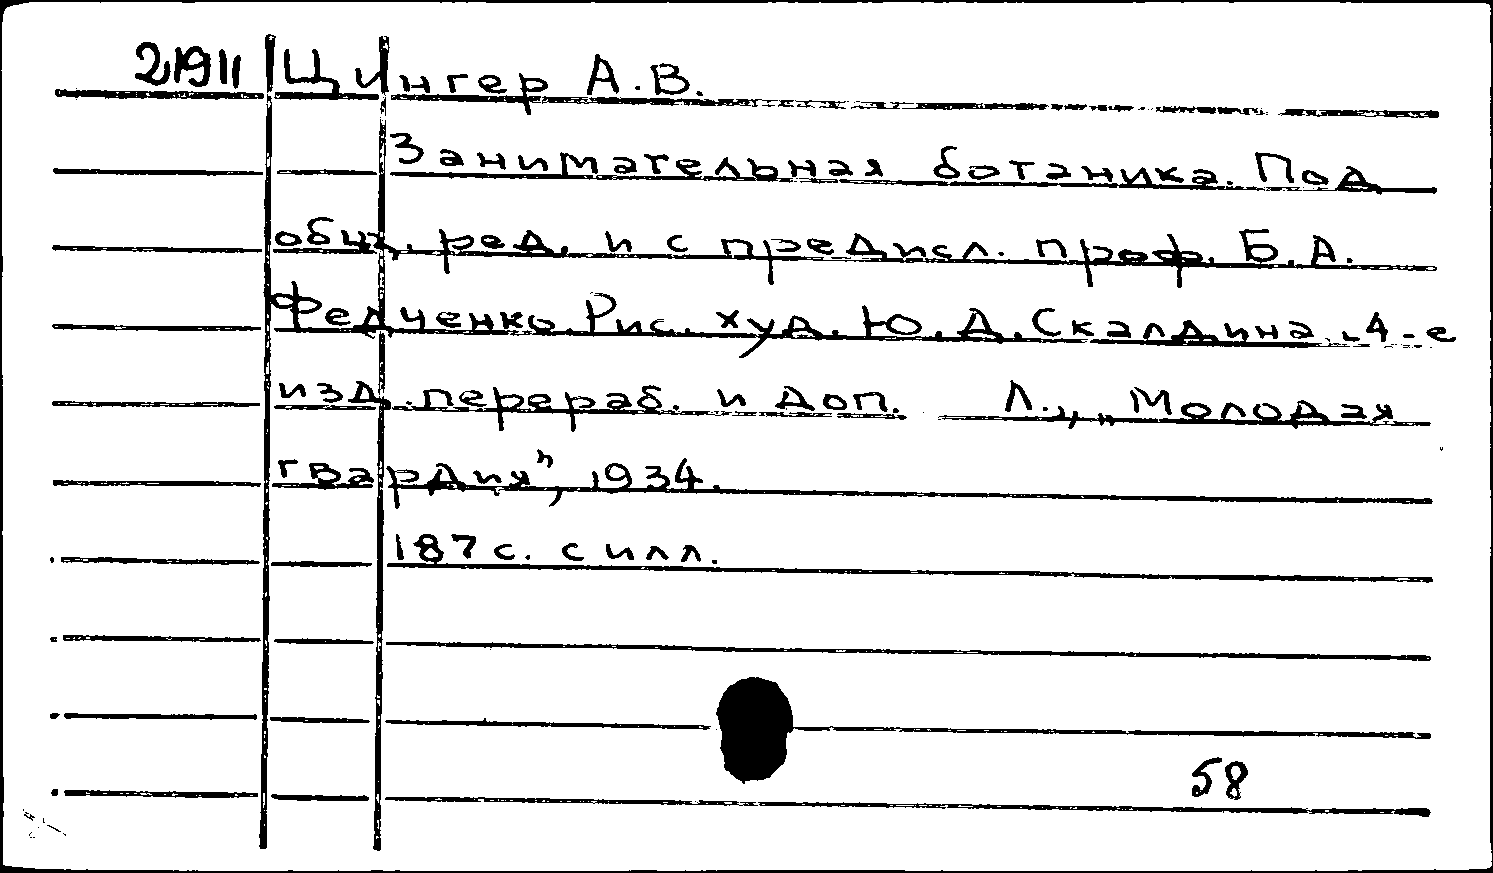 21911 Цингер А.В.
Занимательная ботаника. Под
общ. ред. и с предисл. проф. Б.А.
Федченко. Рис. худ. Ю.Д.Скалдина. 4-е
изд. перераб. и доп. Л., „Молодая
гвардия", 1934.
187 с. с илл.
58